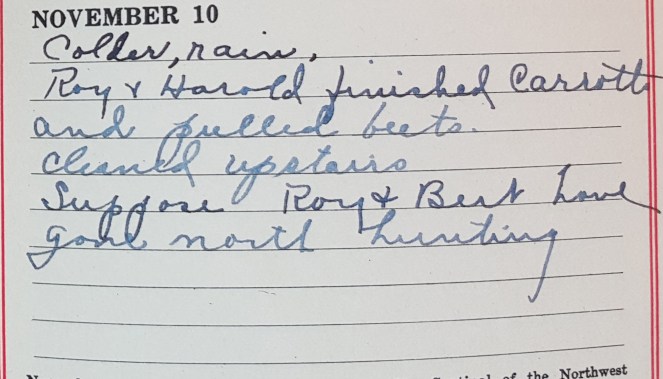 NOVEMBER 10
Colder, rain,
Roy & Harold finished Carrots
and pulled beets.
cleaned upstairs
Suppose Roy & Bert have
gone north hunting
of the Northwest